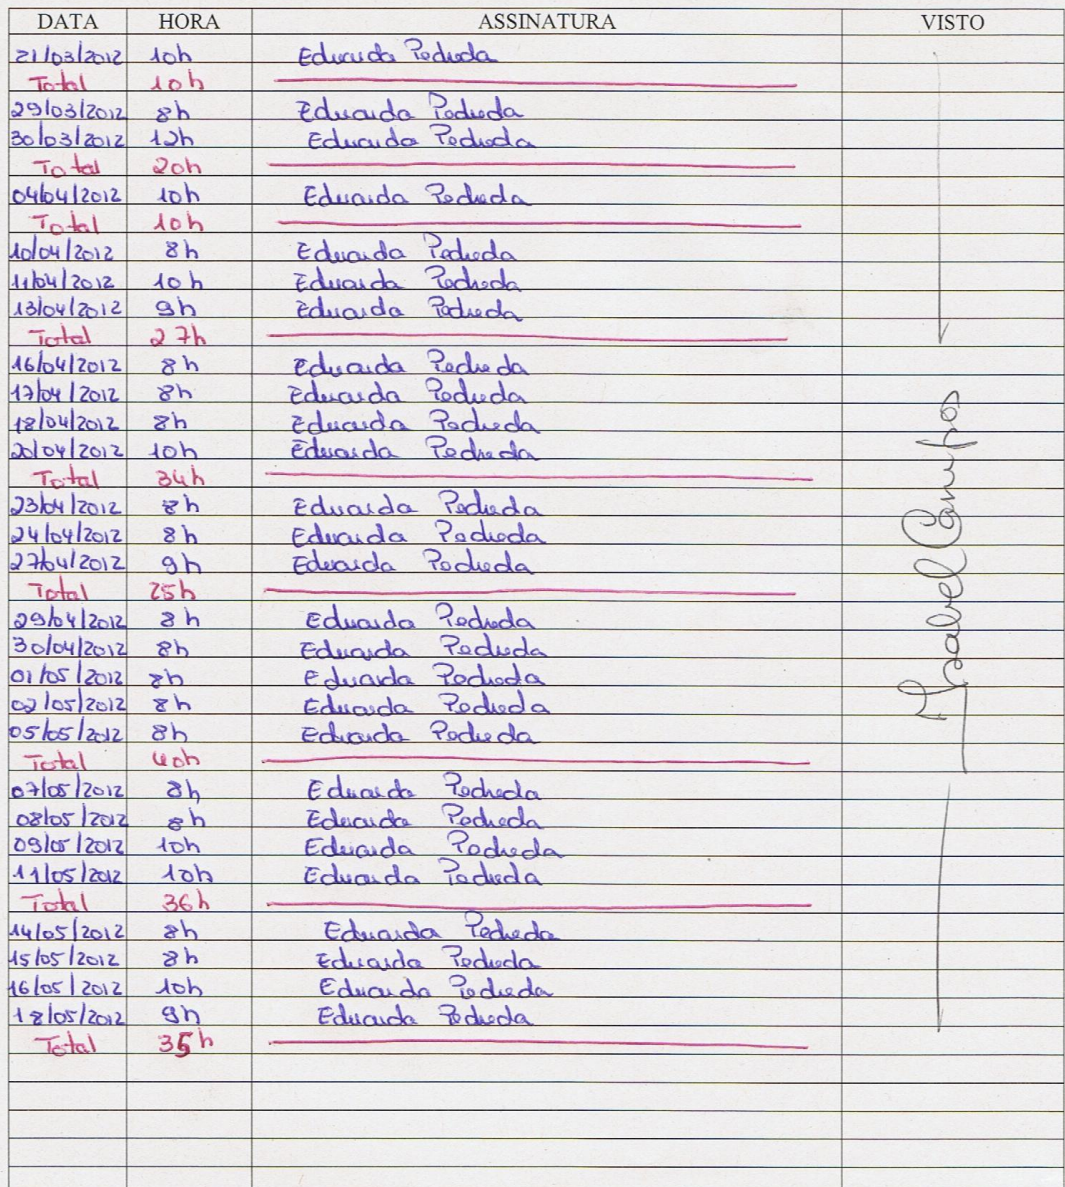 DATA HORA ASSINATURA VISTO
21/03/2012 10h Eduarda Pedreda
Total 10h
29/03/2012 8h Eduarda Pedreda
30/03/2012 12h Eduarda Pedreda
Total 20h
04/04/2012 10h Eduarda Pedreda
Total 10h
10/04/2012 8h Eduarda Pedreda
11/04/2012 10h Eduarda Pedreda
13/04/2012 9h Eduarda Pedreda
Total 27h
16/04/2012 8h Eduarda Pedreda
17/04/2012 8h Eduarda Pedreda
18/04/2012 8h Eduarda Pedreda
20/04/2012 10h Eduarda Pedreda
Total 34h
23/04/2012 8h Eduarda Pedreda
24/04/2012 8h Eduarda Pedreda
27/04/2012 9h Eduarda Pedreda
Total 25h
29/04/2012 8h Eduarda Pedreda
30/04/2012 8h Eduarda Pedreda
01/05/2012 8h Eduarda Pedreda
02/05/2012 8h Eduarda Pedreda
05/05/2012 8h Eduarda Pedreda
Total 40h
07/05/2012 8h Eduarda Pedreda
08/05/2012 8h Eduarda Pedreda
09/05/2012 10h Eduarda Pedreda
11/05/2012 10h Eduarda Pedreda
Total 36h
14/05/2012 8h Eduarda Pedreda
15/05/2012 8h Eduarda Pedreda
16/05/2012 10h Eduarda Pedreda
18/05/2012 9h Eduarda Pedreda
Total 35h
Isabel Campos